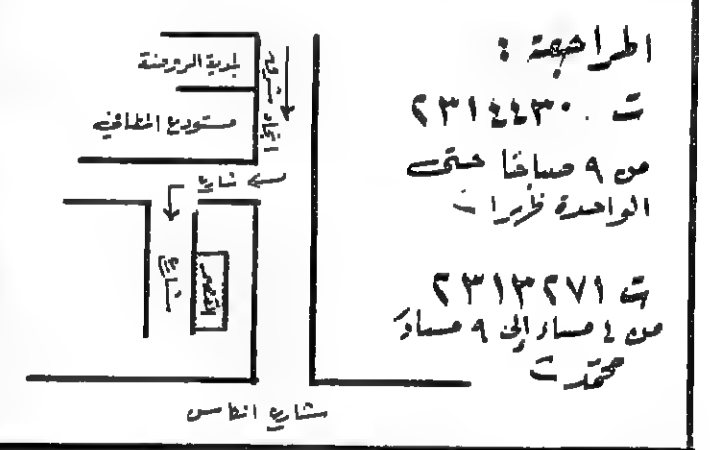 المراجعة :
ت . ٢٣١٤٤٣٠
من ٩ صباحًا حتى
الواحدة ظهرا
ت ٢٣١٣٢٧١
من ٤ مساء إلى ٩ مساءً
بلدية الروضة
مستودع
شارع
شارع
القصر
شارع